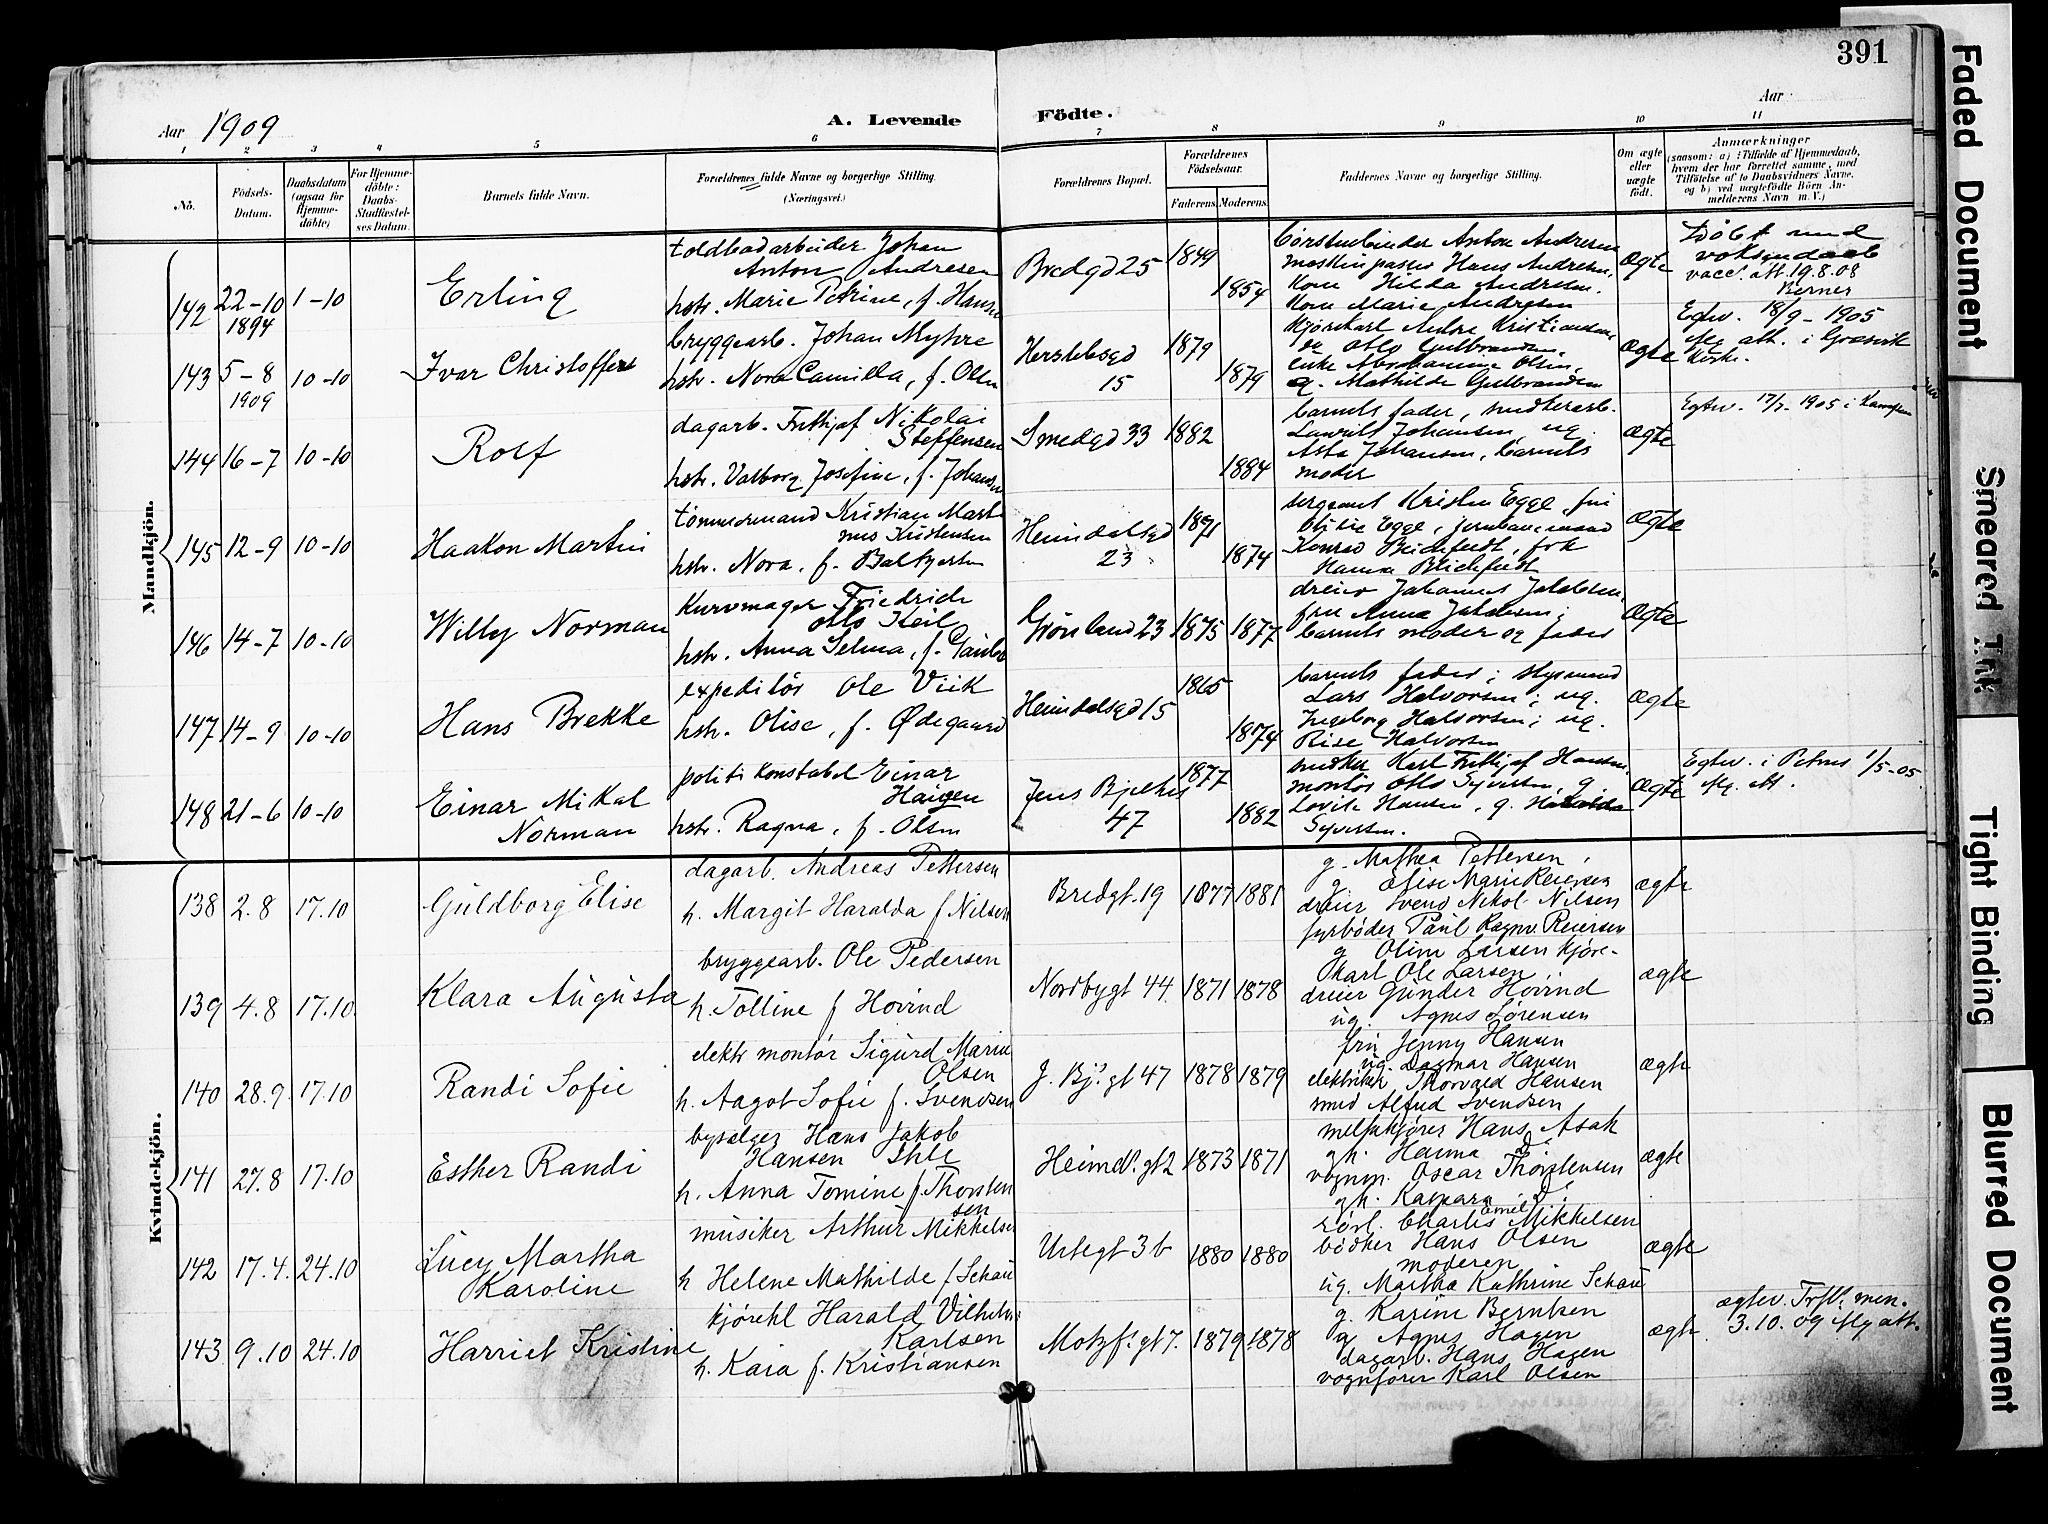 391
Aar 1909
A. Levende
Födte.
Aar
1 2 3 4 5 6 7 8 9 10 11
No.
Födsels-Datum.
Daabsdatum (ogsaa for Hjemmedöbte)
For Hjemmedöbte: Daabs-Stadfæstelses Datum.
Barnets fulde Navn.
Forældrenes fulde Navne og borgerlige Stilling.
(Næringsvei.)
Forældrenes Bopæl.
Forældrenes Födselsaar.
Faderens. Moderens.
Faddernes Navne og borgerlige Stilling.
Om ægte eller uægte födt.
Anmærkninger
(saasom: a) i Tilfælde af Hjemmedaab, hvem der har forrettet samme, med Tilföielse af to Daabsvidners Navne, og b) ved uægtefödte Börn Anmelderens Navn m. V.)
Mandkjön.
142 22-10 1894 1-10 Erling
toldbodarbeider Johan
Anton Andresen
hstr. Marie Petrine, f. Hansen
Bredgd 25 1849 1854
børstenbinder Anton Andresen
maskinpasser Hans Andresen,
Kone Hilda Andresen.
Kone Marie Andresen
ægte
Døbt med
voksendaab
vacc. att. 19.8.08
Berner
143 5-8 1909 10-10 Ivar Christoffer
bryggearb. Johan Myhre
hstr. Nora Camilla, f. Olsen
Herslebsgd
15
1879 1879
Kjørekarl Andre Kristiansen,
Otto Gulbrandsen,
enke Olsen,
g. Mathilde Gulbrandsen
ægte
Egtev. 18/9-1905
Mg. att. i
Kirke.
144 16-7 10-10 Rolf
dagarb. Frithjof Nikolai
Steffensen
hstr. Valborg Josefine, f. Johansen
Smedgd 33 1882 1884
barnets fader, snedkerarb.
Laurits Johansen ug.
Asta Johansen, barnets
moder
ægte
Egtev. 17/7-1905 i Kampen
145 12-9 10-10 Haakon Martin
tømmermand Kristian Marti
nus Kristensen
hstr. Nora, f.
Heimdalsgd
23
1871 1874
sergeant Kristen Egge, fru
Egge, jernbanemand
Konrad Blichfeldt, frk
Hanna Blichfeldt
ægte
146 14-7 10-10 Willy Norman
Kurvmager Friedrich
Otto Keil
hstr. Anna Selma, f.
Grønland 23 1875 1877
dreier Johannes Jakobsen,
fru Anna Jakobsen;
barnets moder og fader
ægte
147 14-9 10-10 Hans Brekke
expeditør Ole Viik
hstr. Olise, f. Ødegaard
Heimdalsgd 15 1865 1874
barnets fader;
Lars Halvorsen; ug.
Ingeborg Halvorsen; ug.
Rise Halvorsen
ægte
148 21-6 10-10 Einar Mikal
Norman
politi konstabel Einar
Haigen
hstr. Ragna, f. Olsen
Jens Bjelkes
47
1877 1882
snedker Karl Frithjof Hansen,
montør Otto Syversen, g.
Lovise Hansen, g.
Syversen.
ægte
Egtev. i Petrus 1/5-05
Mg. att.
Kvindekjön.
138 2.8 17.10 Guldborg Elise
dagarb. Andreas Pettersen
h. Margit Haralda f Nilsen
Bredgt. 19 1877 1881
g. Mathea Pettersen,
g. Elise Marie Reiersen
dreier Svend Nikol. Nilsen
fyrbøder Paul Ragnv. Reiersen
ægte
139 4.8 17.10. Klara Augusta
bryggearb. Ole Pedersen
h. Tolline f Hovind
Nordbygt 44. 1871 1878
g Oline Larsen kjøre-
karl Ole Larsen
dreier Gunder Hovind
ug. Agnes Lørensen
ægte
140 28.9 17.10 Randi Sofie
elektr montør Sigurd Marin
Olsen
h. Aagot Sofie f. Svendsen
J. Bj. gt 47 1878 1879
fru Jenny Hansen
ug. Dagmar Hansen
elektriker Thorvald Hansen
smed Alfred Svendsen
ægte
141 27.8 17.10 Esther Randi
bysælger Hans Jakob
Hansen Ihle
h. Anna Tomine f. Thorsten
sen
Heimd. gt 2 1873 1871
melkekjører Hans Asak
gh. Hanna Do
vognm. Oscar Thorstensen
gh. Kaspara Do
ægte
142 17.4. 24.10 Lucy Martha
Karoline
musiker Arthur Mikkelsen
h Helene Mathilde f Schau
Urtegt 3b 1880 1880
rørl. Charles Emil Mikkelsen
bødker Hans Olsen
moderen
ug. Martha Kathrine Schau
ægte
143 9.10 24.10 Harriet Kristine
kjørekl Harald Vilhelm
Karlsen
h. Kaia f. Kristiansen
Motzf. gt 7. 1879 1878
g. Karine Berntsen
g Agnes Hagen
dagarb. Hans Hagen
vognfører Karl Olsen
ægte
ægtev. Trfk. men.
3.10. og Mg att.
Faded Document
Smeared Ink
Tight Binding
Blurred Document